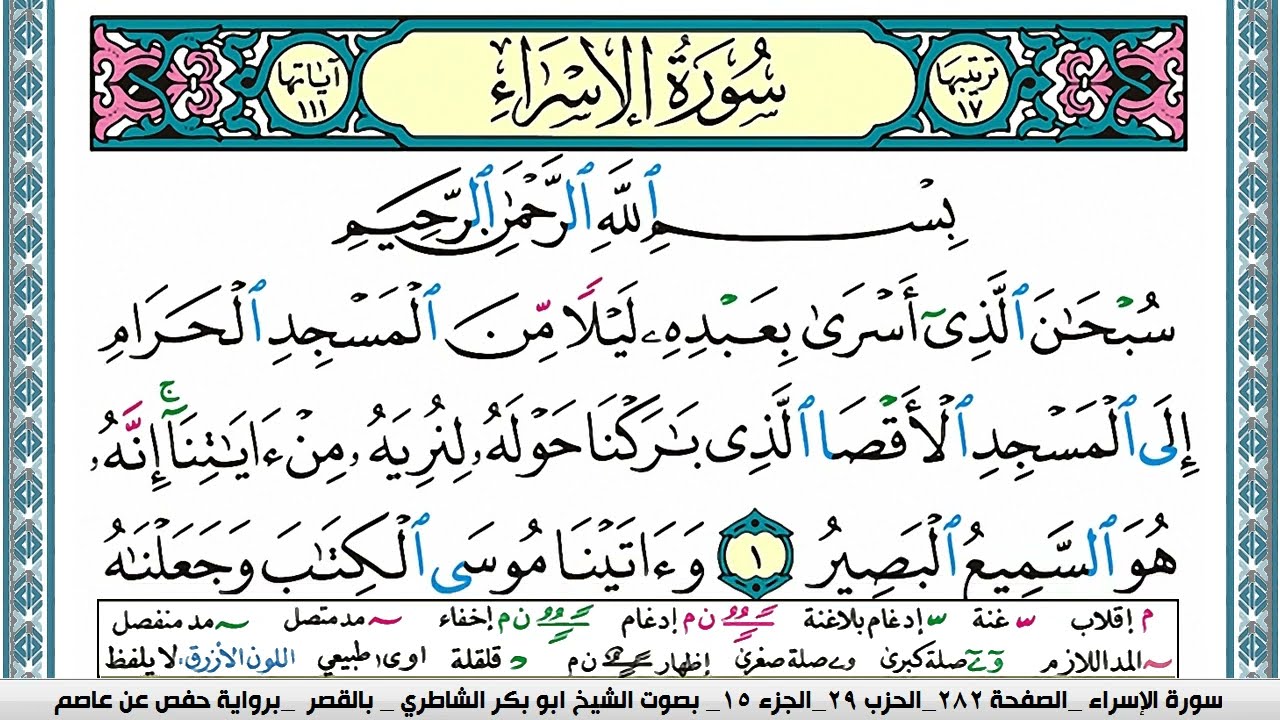 ترتيبها ١٧
سُورَةُ الإِسْرَاءِ
آياتها ١١١
بِسْمِ ٱللَّهِ ٱلرَّحْمَٰنِ ٱلرَّحِيمِ
سُبْحَٰنَ ٱلَّذِىٓ أَسْرَىٰ بِعَبْدِهِۦ لَيْلًا مِّنَ ٱلْمَسْجِدِ ٱلْحَرَامِ
إِلَى ٱلْمَسْجِدِ ٱلْأَقْصَا ٱلَّذِى بَٰرَكْنَا حَوْلَهُۥ لِنُرِيَهُۥ مِنْ ءَايَٰتِنَآ ۚ إِنَّهُۥ
هُوَ ٱلسَّمِيعُ ٱلْبَصِيرُ ١ وَءَاتَيْنَا مُوسَى ٱلْكِتَٰبَ وَجَعَلْنَٰهُ
م إقلاب س غنة س إدغام بلاغنة ن م إدغام ن م إخفاء ~ مد متصل ~ مد منفصل
~ المد اللازم و ے صلة كبرى و ے صلة صغرى إظهار ن م د قلقلة اوى١ طبيعي اللون الأزرق، لا يلفظ
سورة الإسراء _الصفحة ٢٨٢_الحزب ٢٩_الجزء ١٥_ بصوت الشيخ ابو بكر الشاطري _ بالقصر _برواية حفص عن عاصم